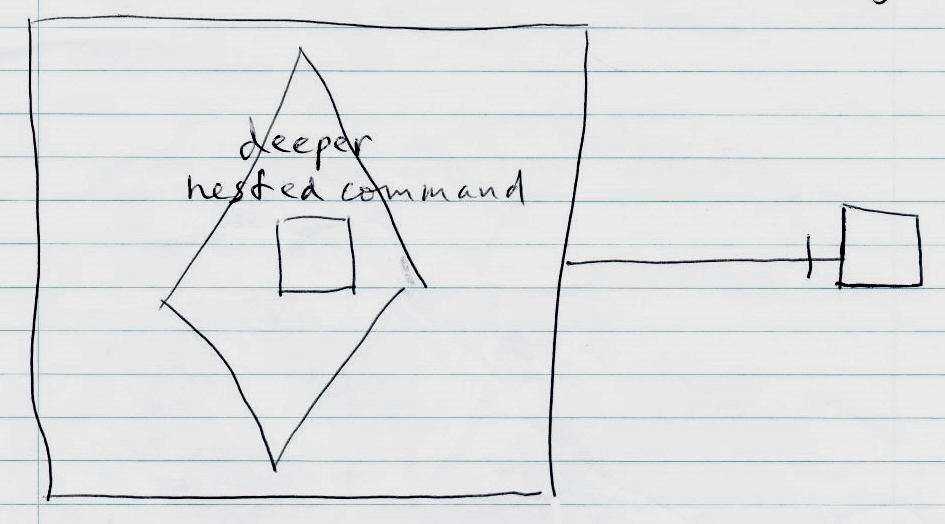 deeper
nested command